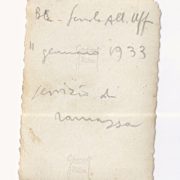 BB - Scuola All. Uff
11 gennaio 1933
servizio di
ramazza